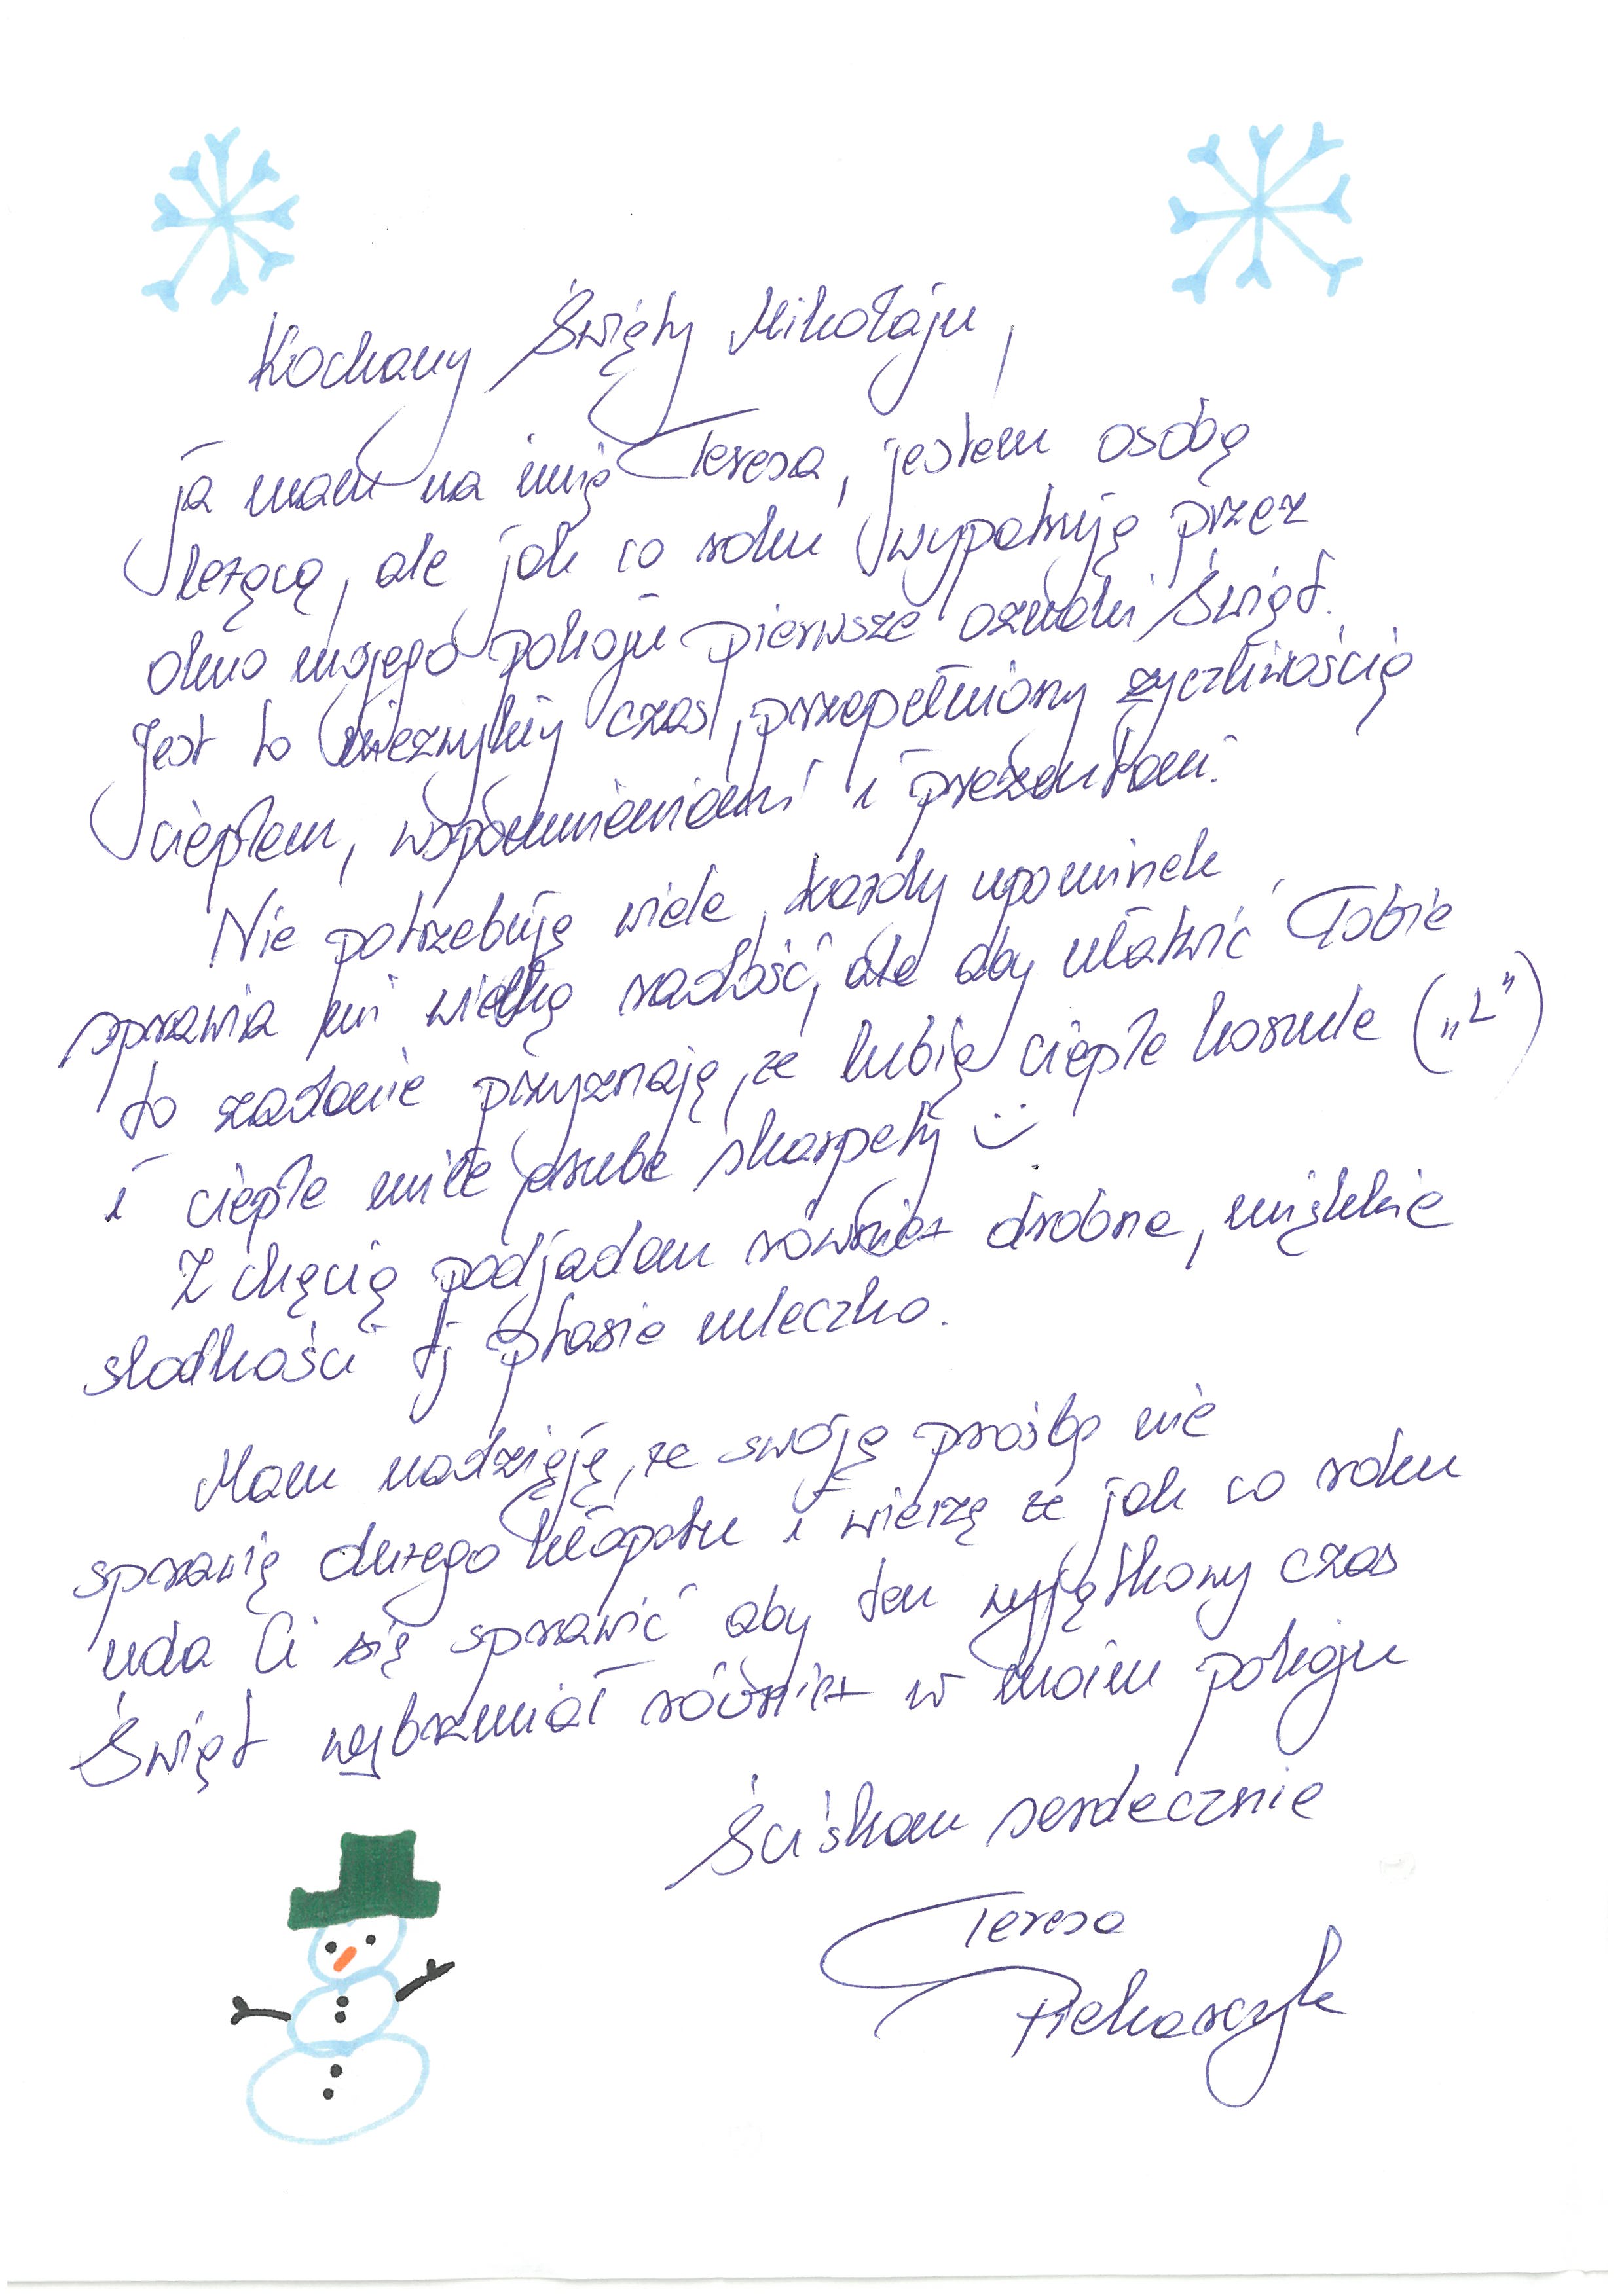 Kochany Święty Mikołaju,
ja mam na imię Teresa, jestem osobą
leżącą, ale jak co roku wypatruję przez
okno mojego pokoju pierwsze oznaki Świąt.
Jest to niezwykły czas, przepełniony życzliwością
ciepłem, wspomnieniami i prezentami.
Nie potrzebuję wiele, każdy upominek
sprawia mi wielką radość, ale aby ułatwić Tobie
to zadanie przyznaję, że lubię ciepłe koszule („L")
i ciepłe miłe grube skarpety :)
Z chęcią podjadam również drobne, miękkie
słodkości tj ptasie mleczko.
Mam nadzięję, że swoją prośbą nie
sprawię dużego kłopotu i wierzę że jak co roku
uda Ci się sprawić aby ten wyjątkowy czas
Świąt wybrzmiał również w moim pokoju
Ściskam serdecznie
Teresa
Piekarczyk